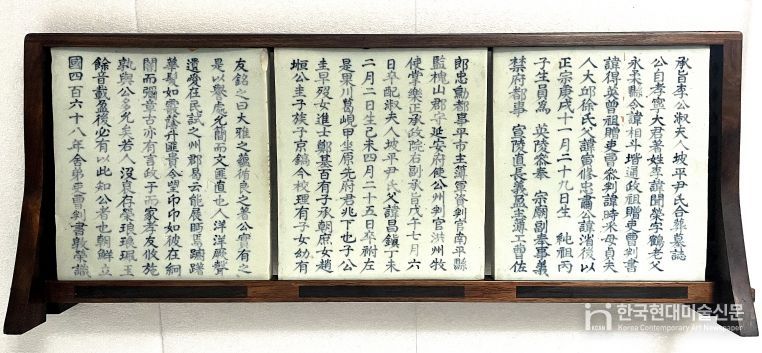 承旨李公淑夫人坡平尹氏合葬墓誌
公自孝寧大君著姓李諱閏榮字鶴老父
永柔縣令諱相斗階通政祖贈吏曹判書
諱得英曾祖贈吏曹參判諱時采母貞夫
人大邱徐氏父諱當修忠肅公諱渻後以
正宗庚戌十一月二十九日生 純祖丙
子生員爲 英陵參奉 宗廟副奉事義
禁府都事 宣陵直長義盈主簿工曹佐
郎忠勳都事平市主簿軍資判官南平縣
監槐山郡守延安府使公州判官洪州牧
使掌樂正承政院右副承旨戊午七月六
日卒配淑夫人坡平尹氏父諱昌鎭丁未
二月二日生己未四月二十五日卒祔左
是果川葛峴甲坐原先府君兆下也子公
圭早歿女進士鄭基百有子承朝庶女趙
垣公圭子族子京鎬今校理有子女幼有
友銘之曰大雅之藏循良之著公實有之
是以譽處允簡而文匪直也人洋洋厥聲
遺愛在民試之州郡易云能展馬躕躇
華髮如雲蔭升匪貴令望卬卬如彼在絅
闇而彌章古亦有言政于而家孝友攸施
孰與公多允矣若人沒良存榮琅琅珮玉
餘音載盈後必有以此知公者也朝鮮立
國四百六十八年舍弟吏曹判書敦榮識
KCAN
한국현대미술신문
Korea Contemporary Art Newspaper